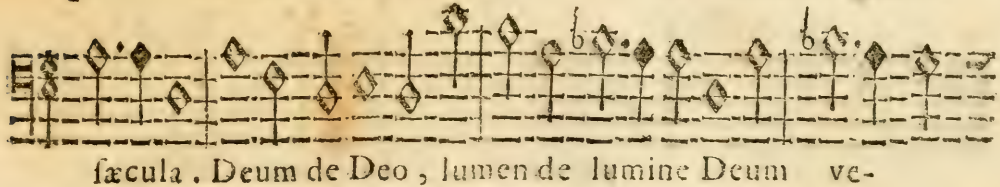 ſæcula . Deum de Deo , lumen de lumine Deum ve-